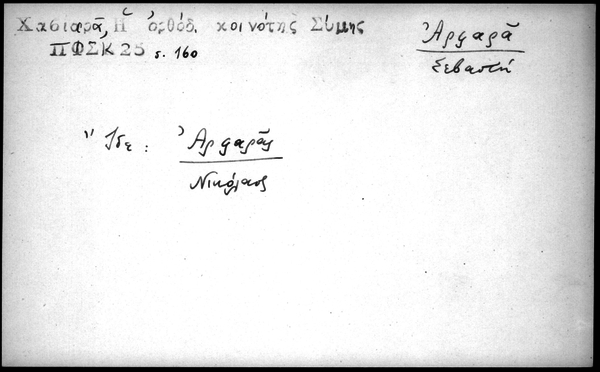 Χαβιαρᾶ, Ἡ ὀρθόδ. κοινότης Σύμης
ΠΦΣΚ 25 s. 160
Ἀργαρᾶ
Σεβαστή
Ἴδε : Ἀργαρᾶς
Νικόλαος